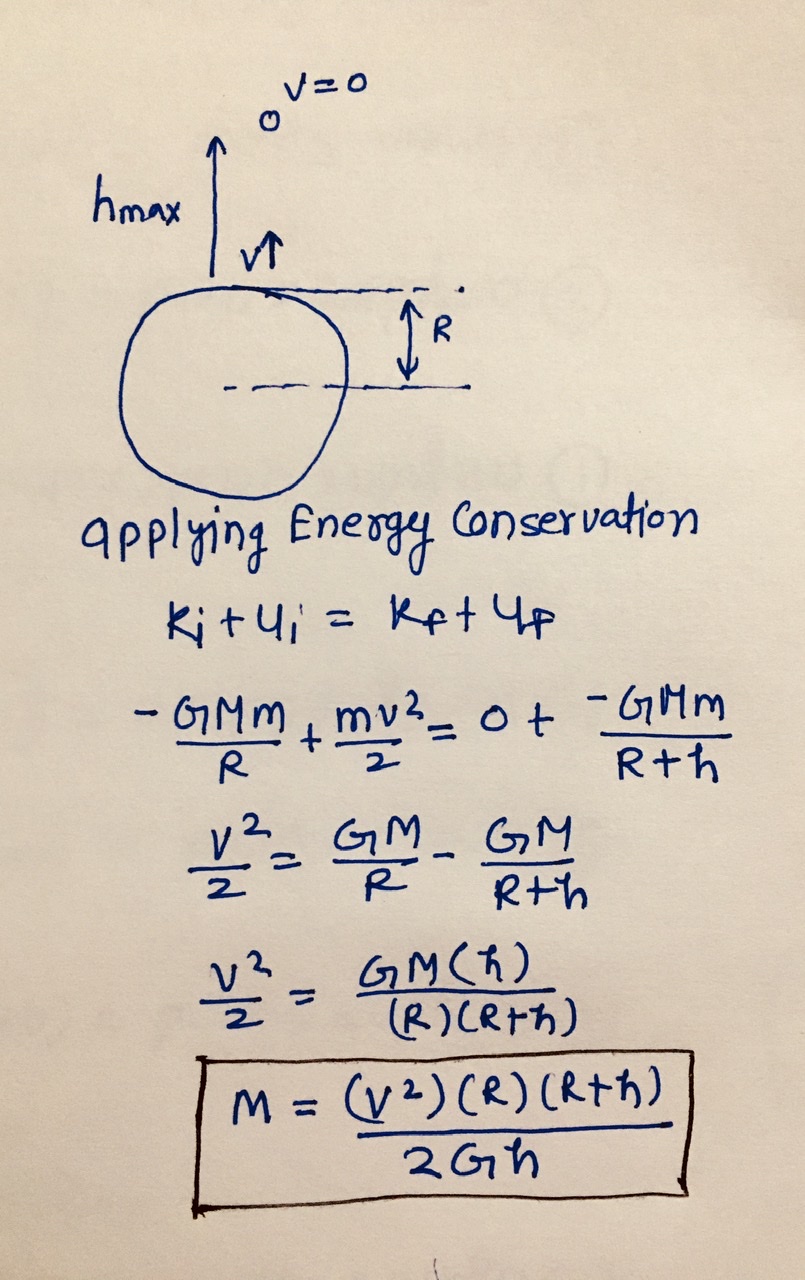 V=0
hmax
V↑
R
applying Energy Conservation
Ki + Ui = Kf + Uf
-GMm/R + mv²/2 = 0 + -GMm/R+h
v²/2 = GM/R - GM/R+h
v²/2 = GM(h)/(R)(R+h)
M = (v²)(R)(R+h)/2Gh